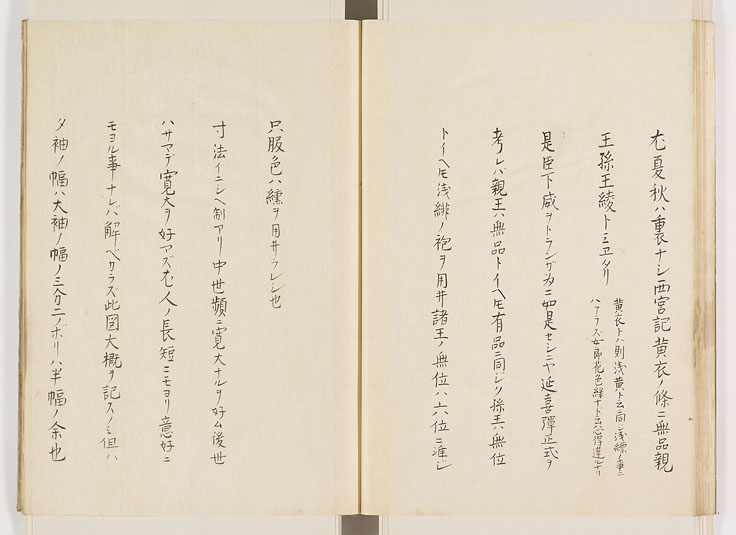 尤夏秋ハ重衣ナシ西宮記黄衣ノ條ニ無品親
王孫王綾トミヱタリ
黄衣トハ則浅黄ト云ニ同シ浅縹ノ事ニ
ハアラス女郎花色緑ナト云心得違ルナリ
是臣下威ヲトランガ為ニ如是セシニヤ延喜弾正式ヲ
考レバ親王ハ無品トイヘ𪜈有品ニ同シク孫王ハ無位
トイヘ𪜈浅緋ノ袍ヲ用井諸王ノ無位ハ六位ニ准シ
只服色ハ纁ヲ用井ラレシ也
寸法イニシヘ制アリ中世頻ニ寛大ナルヲ好ム後世
ハサマデ寛大ヲ好マズ尤人ノ長短ニモヨリ意好ニ
モヨル事ナレバ解ベカラズ此図大概ヲ記スノミ但ハ
タ袖ノ幅ハ大袖ノ幅ノ三分二ノボリハ半幅ノ余也